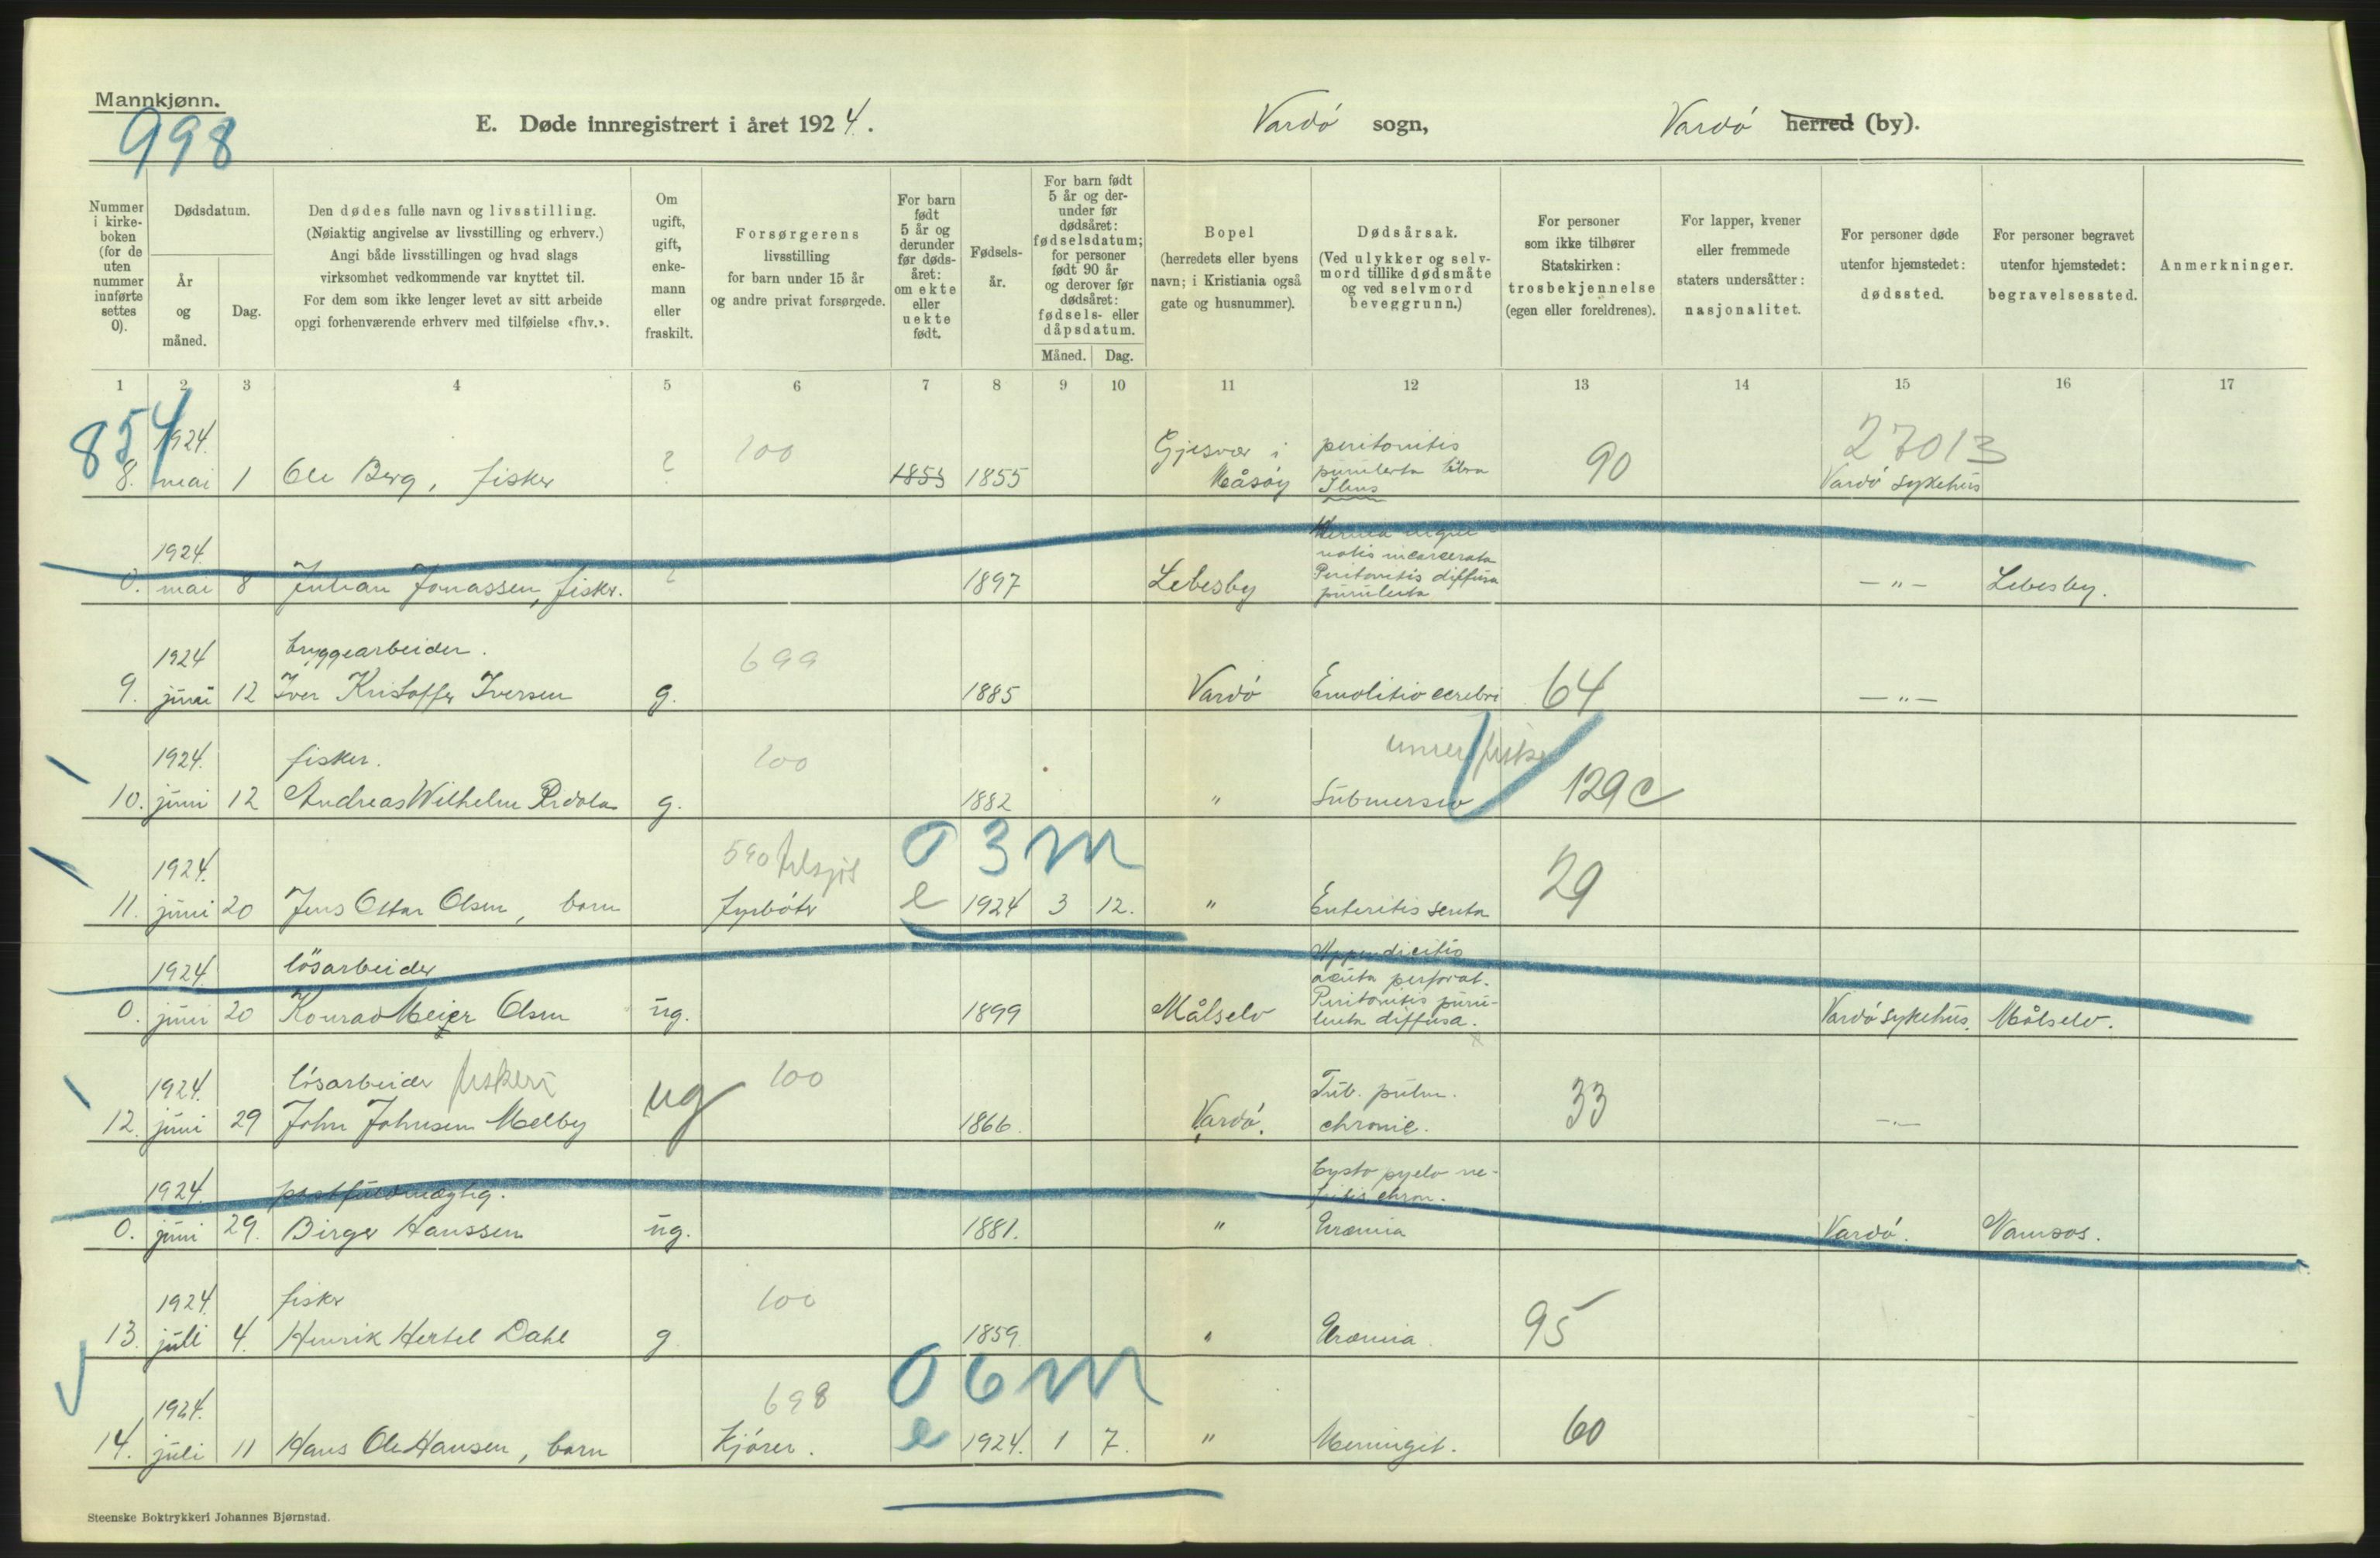 Mannkjønn.
998
E. Døde innregistrert i året 1924.
Vardö sogn,
Vardö herred (by).
Nummer i kirke- boken (for de uten nummer innførte settes 0).
Dødsdatum.
År og måned.
Dag.
Den dødes fulle navn og livsstilling.
(Nøiaktig angivelse av livsstilling og erhverv.)
Angi både livsstillingen og hvad slags
virksomhet vedkommende var knyttet til.
For dem som ikke lenger levet av sitt arbeide
opgi forhenværende erhverv med tilføielse «fhv.».
Om ugift, gift, enke- mann eller fraskilt.
Forsørgerens livsstilling for barn under 15 år og andre privat forsørgede.
For barn født 5 år og derunder før døds- året: om ekte eller uekte født.
Fødsels- år.
For barn født 5 år og der- under før dødsåret: fødselsdatum; for personer født 90 år og derover før dødsåret: fødsels- eller dåpsdatum.
Måned. Dag.
Bopel (herredets eller byens navn; i Kristiania også gate og husnummer).
Dødsårsak. (Ved ulykker og selv- mord tillike dødsmåte og ved selvmord beveggrunn.)
For personer som ikke tilhører Statskirken: trosbekjennelse (egen eller foreldrenes).
For lapper, kvener eller fremmede staters undersåtter: nasjonalitet.
For personer døde utenfor hjemstedet: dødssted.
For personer begravet utenfor hjemstedet: begravelsessted.
Anmerkninger.
1 2 3 4 5 6 7 8 9 10 11 12 13 14 15 16 17
854
1924. 100 Gjesvær i peritonitis 27013
8. mai 1 Ole Berg, fisker ? 1853 1855 Måsöy purulenta 90 Vardö sykehus
Ileus
1924.
0. mai 8 Julian Jonassen, fisker. ? 1897 Lebesby Peritonitis diffusa — " — Lebesby.
incarcerata
purulenta
1924 bryggearbeider. 699
9. juni 12 Iver Kristoffer Iversen g. 1885 Vardö Emolitio cerebri 64 — " —
1924. fisker. 100
10. juni 12 Andreas Wilhelm g. 1882 " Submersio 129c
1924. 590 03m
11. juni 20 Jens Ottar Olsen, barn fyrböter e 1924 3 12. " Enteritis acuta 29
1924. lösarbeider Appendicitis
acuta perforat.
0. juni 20 Konrad Meier Olsen ug. 1899 Målselv Peritonitis puru- Vardö sykehus. Målselv.
lenta diffusa.
1924. lösarbeider fiskeri ug 100 Tub. pulm. 33
12. juni 29 John Johnsen Melby 1866. Vardö. chronic. — " —
1924. postfuldmægtig. Cysto pyelo ne-
fritis chron.
0. juni 29. Birger Hanssen ug. 1881. " Uræmia Vardö. Namsos.
1924. fisker 100
13. juli 4. Henrik Hertel Dahl g 1859. " Uræmia. 95
1924. 698 06m
14. juli 11 Hans Ole Hansen, barn Kjörer. e 1924. 1 7. " Meningit. 60
Steenske Boktrykkeri Johannes Bjørnstad.